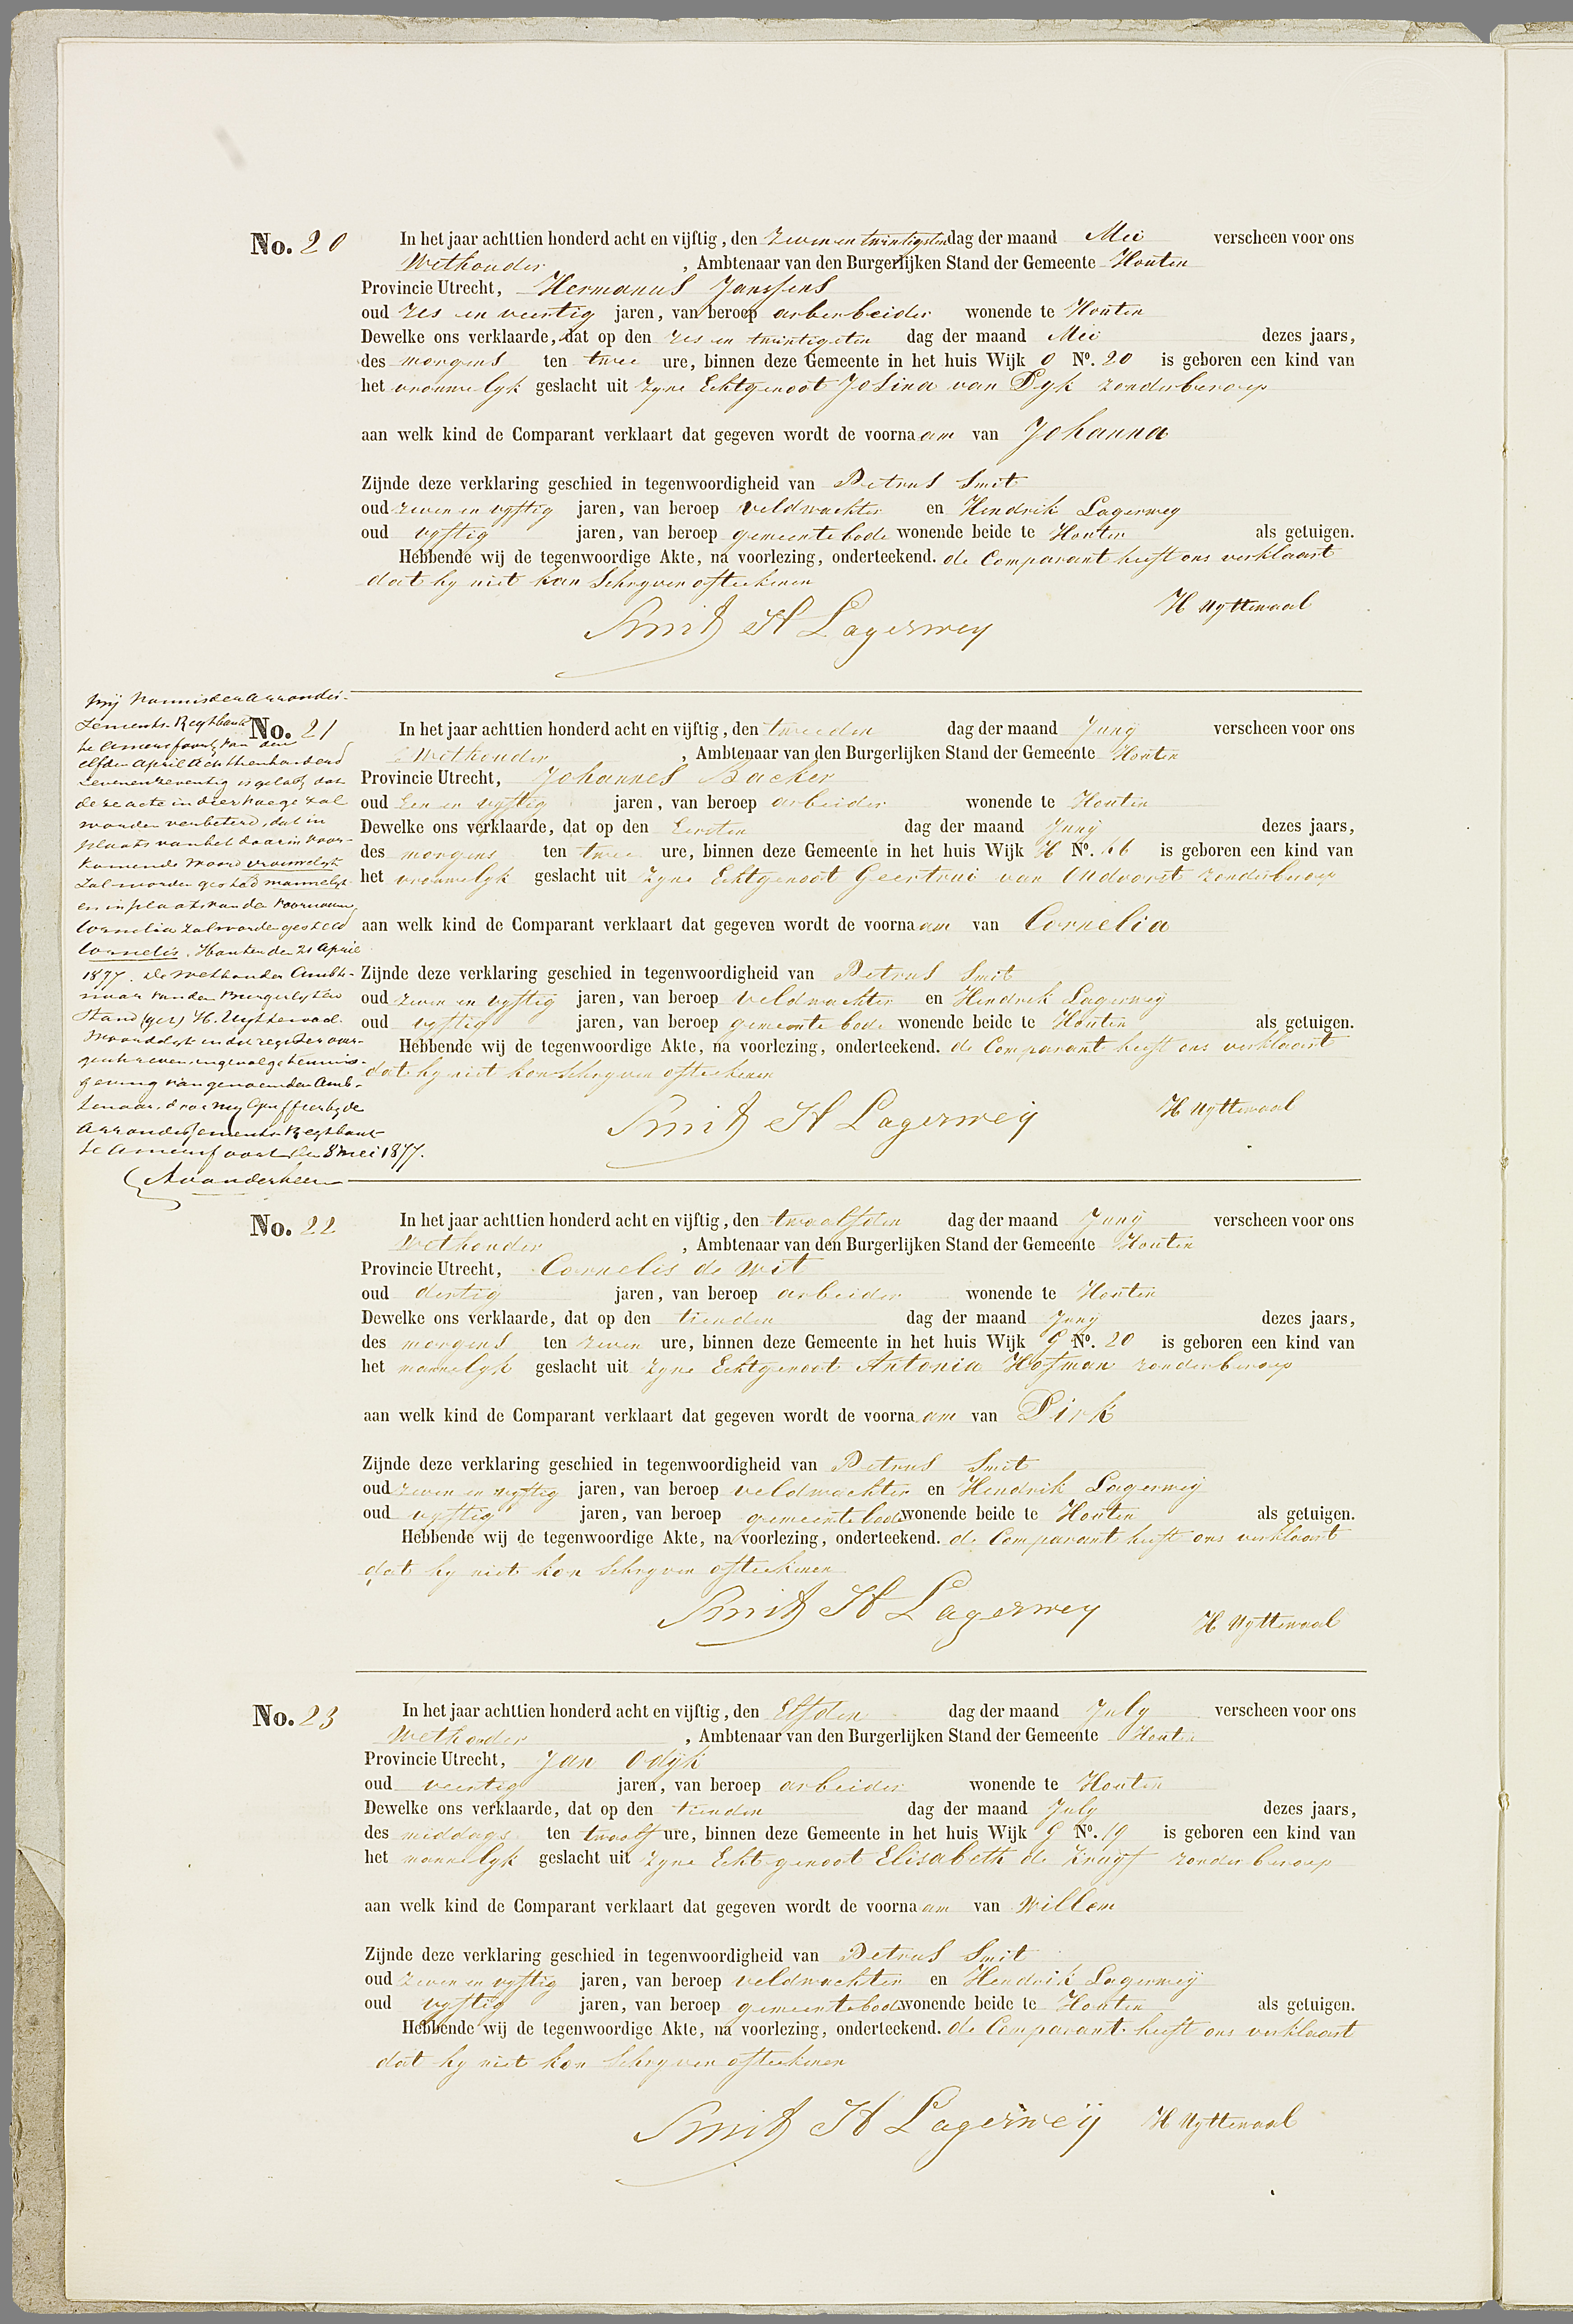 No. 20
In het jaar achttien honderd acht en vijftig, den zeven en twintigsten dag der maand Mei verscheen voor ons
Wethouder, Ambtenaar van den Burgerlijken Stand der Gemeente Houten
Provincie Utrecht, Hermanus Janssens
oud zes en veertig jaren, van beroep arberbeider wonende te Houten
Dewelke ons verklaarde, dat op den zes en twintigsten dag der maand Mei dezes jaars,
des morgens ten twee ure, binnen deze Gemeente in het huis Wijk O No. 20 is geboren een kind van
het vrouwelyk geslacht uit zyne Echtgenoot Josina van Dyk zonder beroep
aan welk kind de Comparant verklaart dat gegeven wordt de voornaam van Johanna
Zijnde deze verklaring geschied in tegenwoordigheid van Petrus Smit
oud zeven en vyftig jaren, van beroep veldwachter en Hendrik Lagerwey
oud vyftig jaren, van beroep gemeentebode wonende beide te Houten als getuigen.
Hebbende wij de tegenwoordige Akte, na voorlezing, onderteekend. de Comparant heeft ons verklaart
dat hy niet kan schryven ofteekenen
H Uyttewaal
Smit H Lagerwey
Bij vonnis der Arrondis-
sements-Regtbank
te Amersfoort van den
elfden April Achttienhonderd
zevenenzeventig is gelast dat
deze acte in dier voege zal
worden verbeterd, dat in
plaats van het daarin voor-
komende woord vrouwelyk
zal worden gesteld mannelyk
en in plaats van den voornaam
Cornelia zal worden gesteld
Cornelis. Houten den 21 April
1877. De Wethouder Ambte-
naar van den Burgerlyken
Stand (get) H. Uyttewaal.
Woordelyk in dit register over-
geschreven ingevolge kennis-
geving van genoemden Amb-
tenaar, door my Griffier by de
Arrondissements-Regtbank
te Amersfoort den 8 Mei 1877.
No. 21
In het jaar achttien honderd acht en vijftig, den tweeden dag der maand Juny verscheen voor ons
Wethouder, Ambtenaar van den Burgerlijken Stand der Gemeente Houten
Provincie Utrecht, Johannes Backer
oud Een en vyftig jaren, van beroep arbeider wonende te Houten
Dewelke ons verklaarde, dat op den Eersten dag der maand Juny dezes jaars,
des morgens ten twee ure, binnen deze Gemeente in het huis Wijk H No. 66 is geboren een kind van
het vrouwelyk geslacht uit zyne Echtgenoot Geertrui van Oudvorst zonder beroep
aan welk kind de Comparant verklaart dat gegeven wordt de voornaam van Cornelia
Zijnde deze verklaring geschied in tegenwoordigheid van Petrus Smit
oud zeven en vyftig jaren, van beroep veldwachter en Hendrik Lagerweÿ
oud vyftig jaren, van beroep gemeente bode wonende beide te Houten als getuigen.
Hebbende wij de tegenwoordige Akte, na voorlezing, onderteekend. de Comparant heeft ons verklaart
dat hy niet kon schryven ofteekenen
H Uyttewaal
Smit H Lagerweÿ
No. 22
In het jaar achttien honderd acht en vijftig, den twaalfden dag der maand Juny verscheen voor ons
Wethouder, Ambtenaar van den Burgerlijken Stand der Gemeente Houten
Provincie Utrecht, Cornelis de Wit
oud dertig jaren, van beroep arbeider wonende te Houten
Dewelke ons verklaarde, dat op den tienden dag der maand Juny dezes jaars,
des morgens ten zeven ure, binnen deze Gemeente in het huis Wijk G No. 20 is geboren een kind van
het mannelyk geslacht uit zyne Echtgenoot Antonia Hofman zonder beroep
aan welk kind de Comparant verklaart dat gegeven wordt de voornaam van Dirk
Zijnde deze verklaring geschied in tegenwoordigheid van Petrus Smit
oud zeven en vyftig jaren, van beroep veldwachter en Hendrik Lagerweÿ
oud vyftig jaren, van beroep gemeentebode wonende beide te Houten als getuigen.
Hebbende wij de tegenwoordige Akte, na voorlezing, onderteekend. de Comparant heeft ons verklaart
dat hy niet kon schryven ofteekenen
Smit H Lagerwey
H Uyttewaal
No. 23
In het jaar achttien honderd acht en vijftig, den Elfden dag der maand July verscheen voor ons
Wethouder, Ambtenaar van den Burgerlijken Stand der Gemeente Houten
Provincie Utrecht, Jan Odÿk
oud veertig jaren, van beroep arbeider wonende te Houten
Dewelke ons verklaarde, dat op den tienden dag der maand July dezes jaars,
des middags ten twaalf ure, binnen deze Gemeente in het huis Wijk G No. 19 is geboren een kind van
het mannelyk geslacht uit zyne Echtgenoot Elisabeth de Kruyf zonder beroep
aan welk kind de Comparant verklaart dat gegeven wordt de voornaam van Willem
Zijnde deze verklaring geschied in tegenwoordigheid van Petrus Smit
oud zeven en vyftig jaren, van beroep veldwachter en Hendrik Lagerweÿ
oud vyftig jaren, van beroep gemeentebode wonende beide te Houten als getuigen.
Hebbende wij de tegenwoordige Akte, na voorlezing, onderteekend. de Comparant heeft ons verklaart
dat hy niet kon schryven ofteekenen
Smit H Lagerweÿ H Uyttewaal